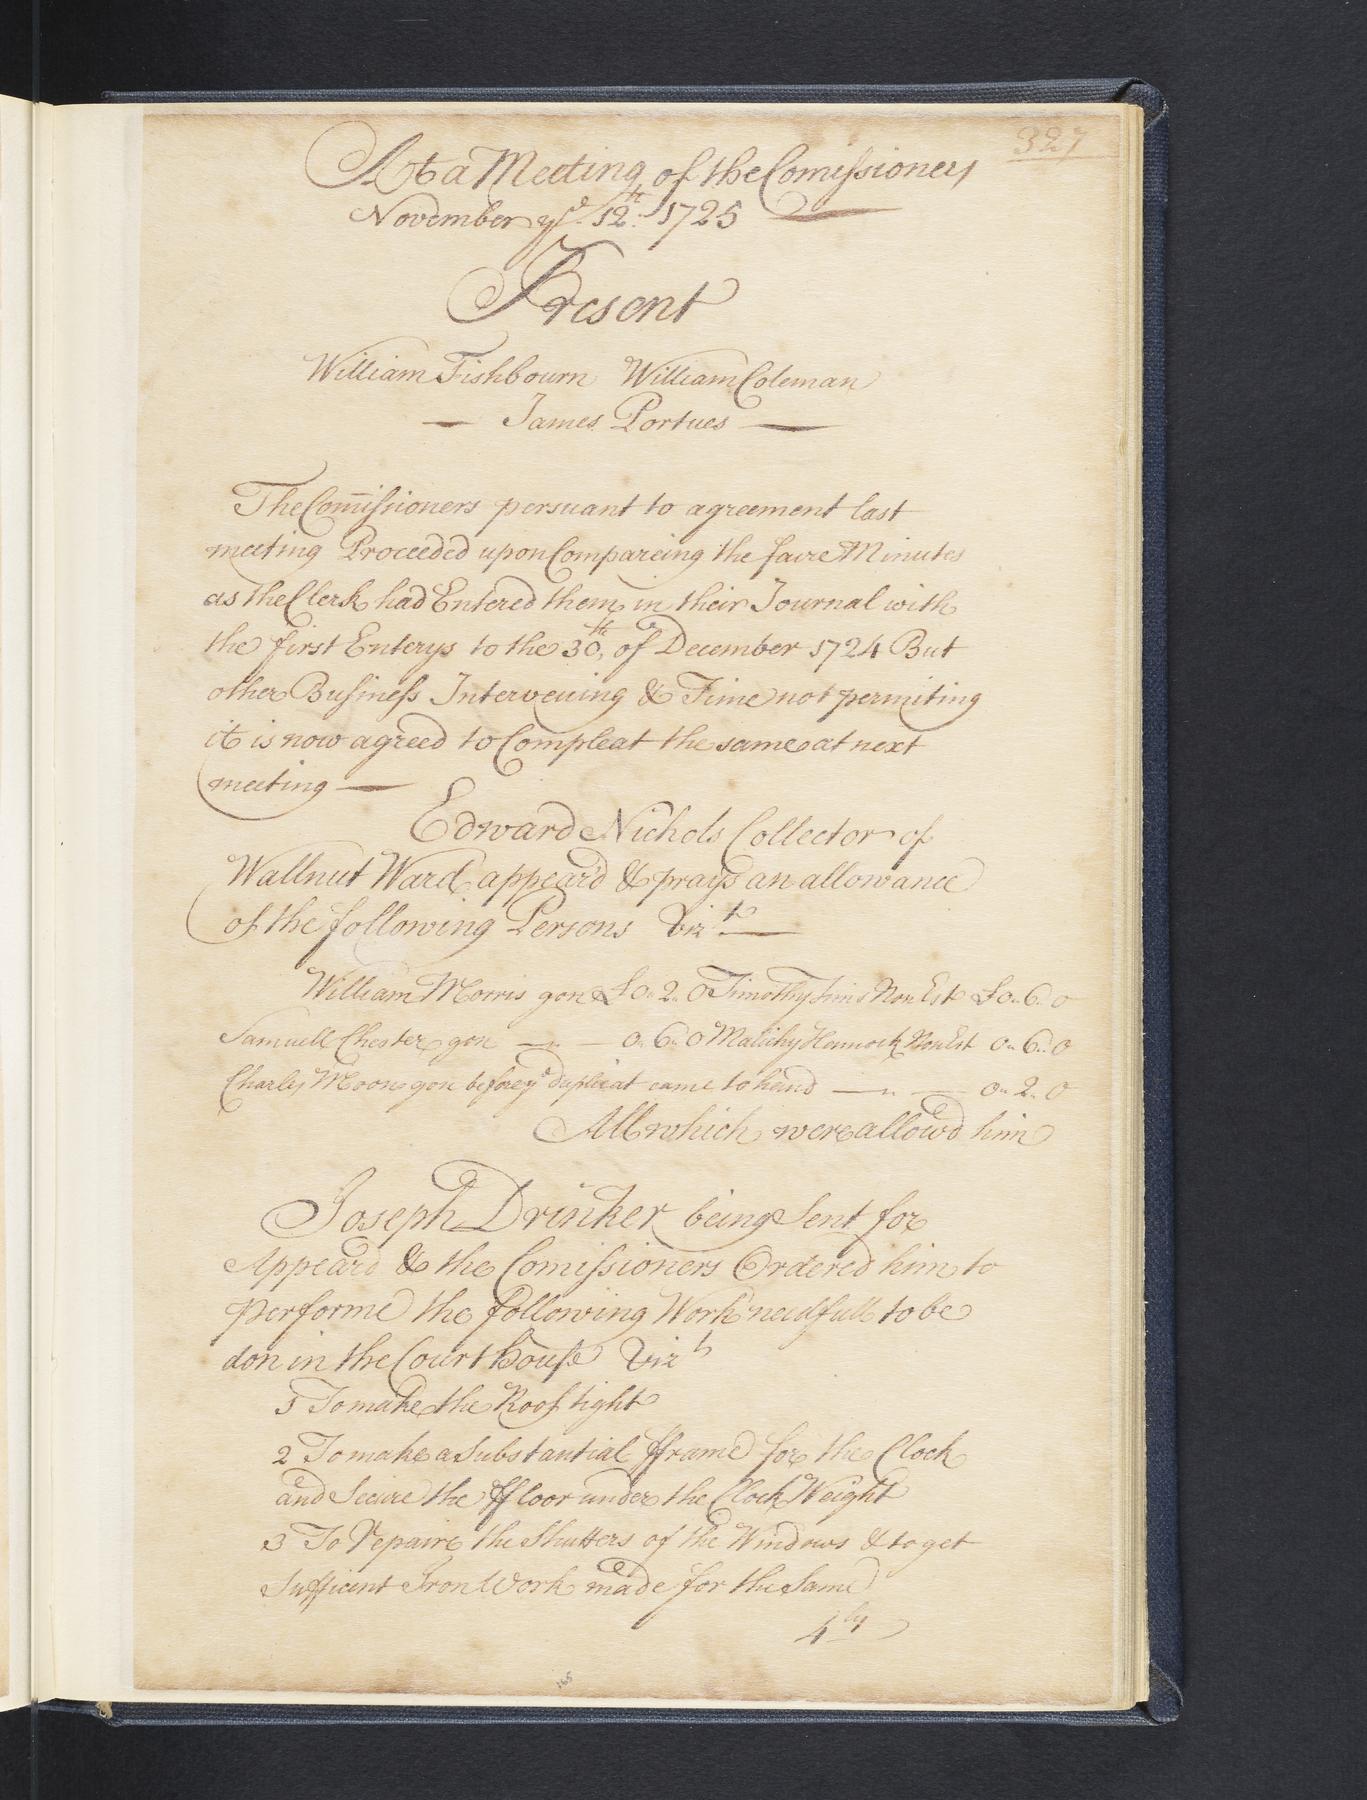 327
At a Meeting of the Comissioners
November ye 12th 1725
Present
William Fishbourn William Coleman
— James Portues —
The Comissioners persuant to agreement last
meeting Proceeded upon Compareing the faire Minutes
as the Clerk had Entered them in their Journal with
the first Enterys to the 30th of December 1724 But
other Business Intervening & Time not permiting
it is now agreed to Compleat the same at next
meeting —
Edward Nichols Collector of
Wallnut Ward appeard & prays an allowance
of the following Persons Vizt —
William Morris gon £0..2..0 Timothy Sims Non Est £0..6..0
Samuell Chester gon — 0..6..0 Malichy Non Est 0..6..0
Charles Moon gon before ye duplicat came to hand — 0..2..0
All which were allowd him
Joseph Drinker being Sent for
Appeard & the Comissioners Ordered him to
performe the following Work needfull to be
don in the Court house Vizt
1 To make the Roof tight
2 To make a Substantial fframe for the Clock
and Secure the ffloor under the Clock Weight
3 To Repaire the Shutters of the Windows & to get
Sufficient Iron Work made for the Same
4ly
165